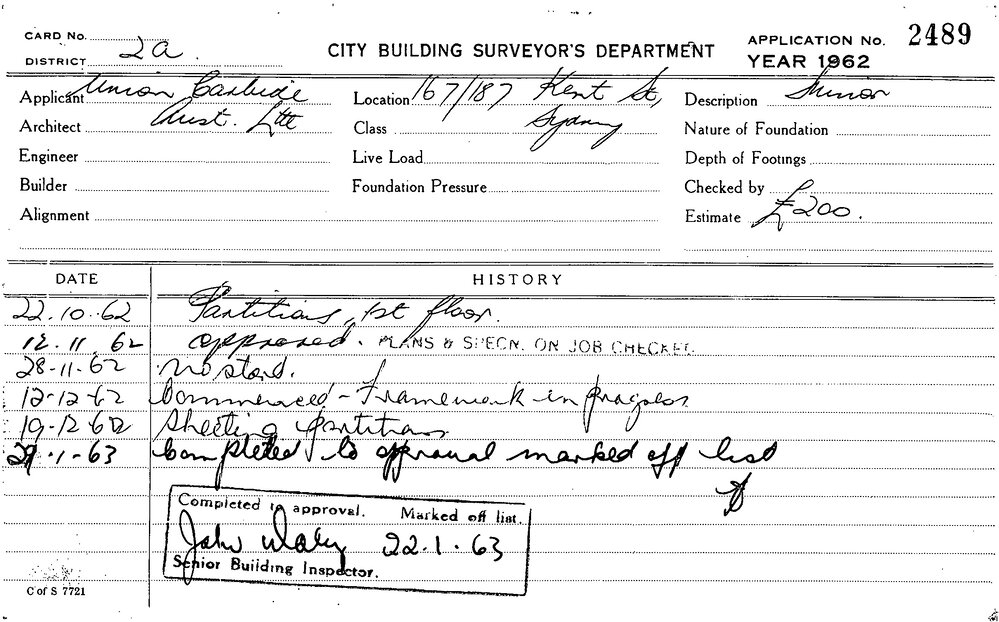 CARD No.
DISTRICT 2a.
CITY BUILDING SURVEYOR'S DEPARTMENT
APPLICATION No. 2489
YEAR 1962
Applicant Union Carbide
Location 167/187 Kent St,
Description Minor
Architect Aust. Ltd
Class Sydney
Nature of Foundation
Engineer
Live Load
Depth of Footings
Builder
Foundation Pressure
Checked by
Alignment
Estimate £200.
DATE HISTORY
22.10.62 Partitions, 1st floor.
12.11.62 approved. PLANS & SPECN. ON JOB CHECKED.
28-11-62 No start.
12-12-62 Commenced - Framework in progress
19-12-62 Sheeting partitions
29-1-63 Completed to approval marked off list
Completed to approval. Marked off list.
John Daley 22.1.63
Senior Building Inspector.
C of S 7721